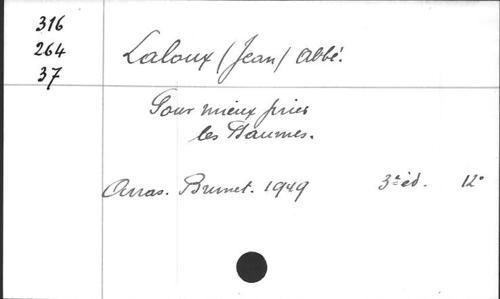 316
264
37
Laloux (Jean) Abbé.
Pour mieux prier
les Psaumes.
Arras. Brunet. 1949 3e éd. 12°